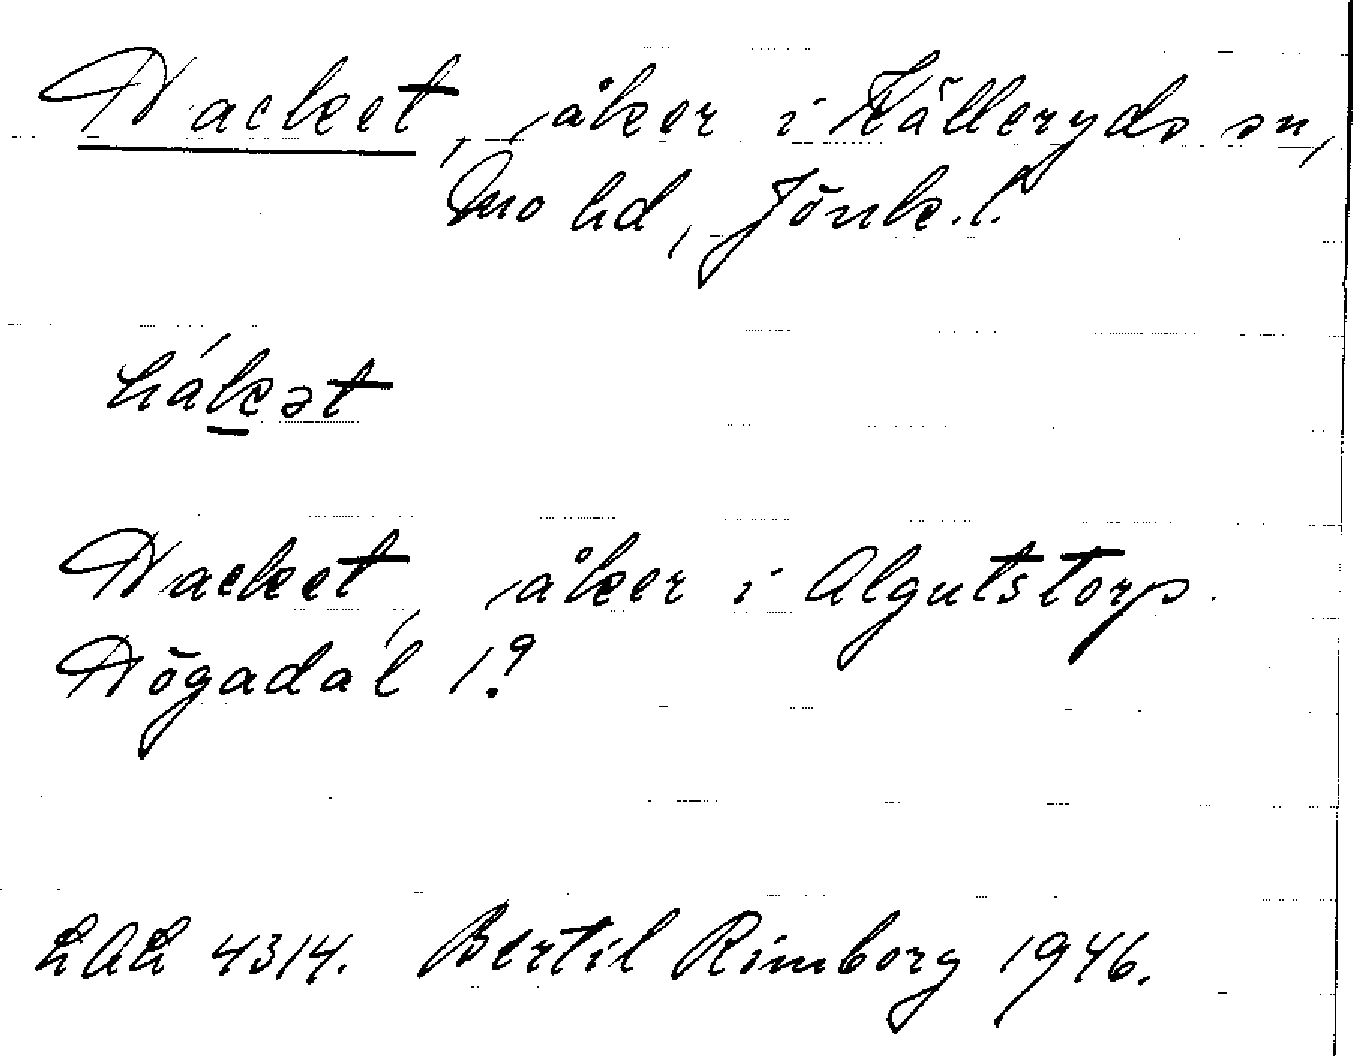 Hacket, åker i Källeryds sn,
Mo hd, Jönk. l.
hákət
Hacket, åker i Algutstorps
Högadal 1:9
LAL 4314. Bertil Rimborg 1946.